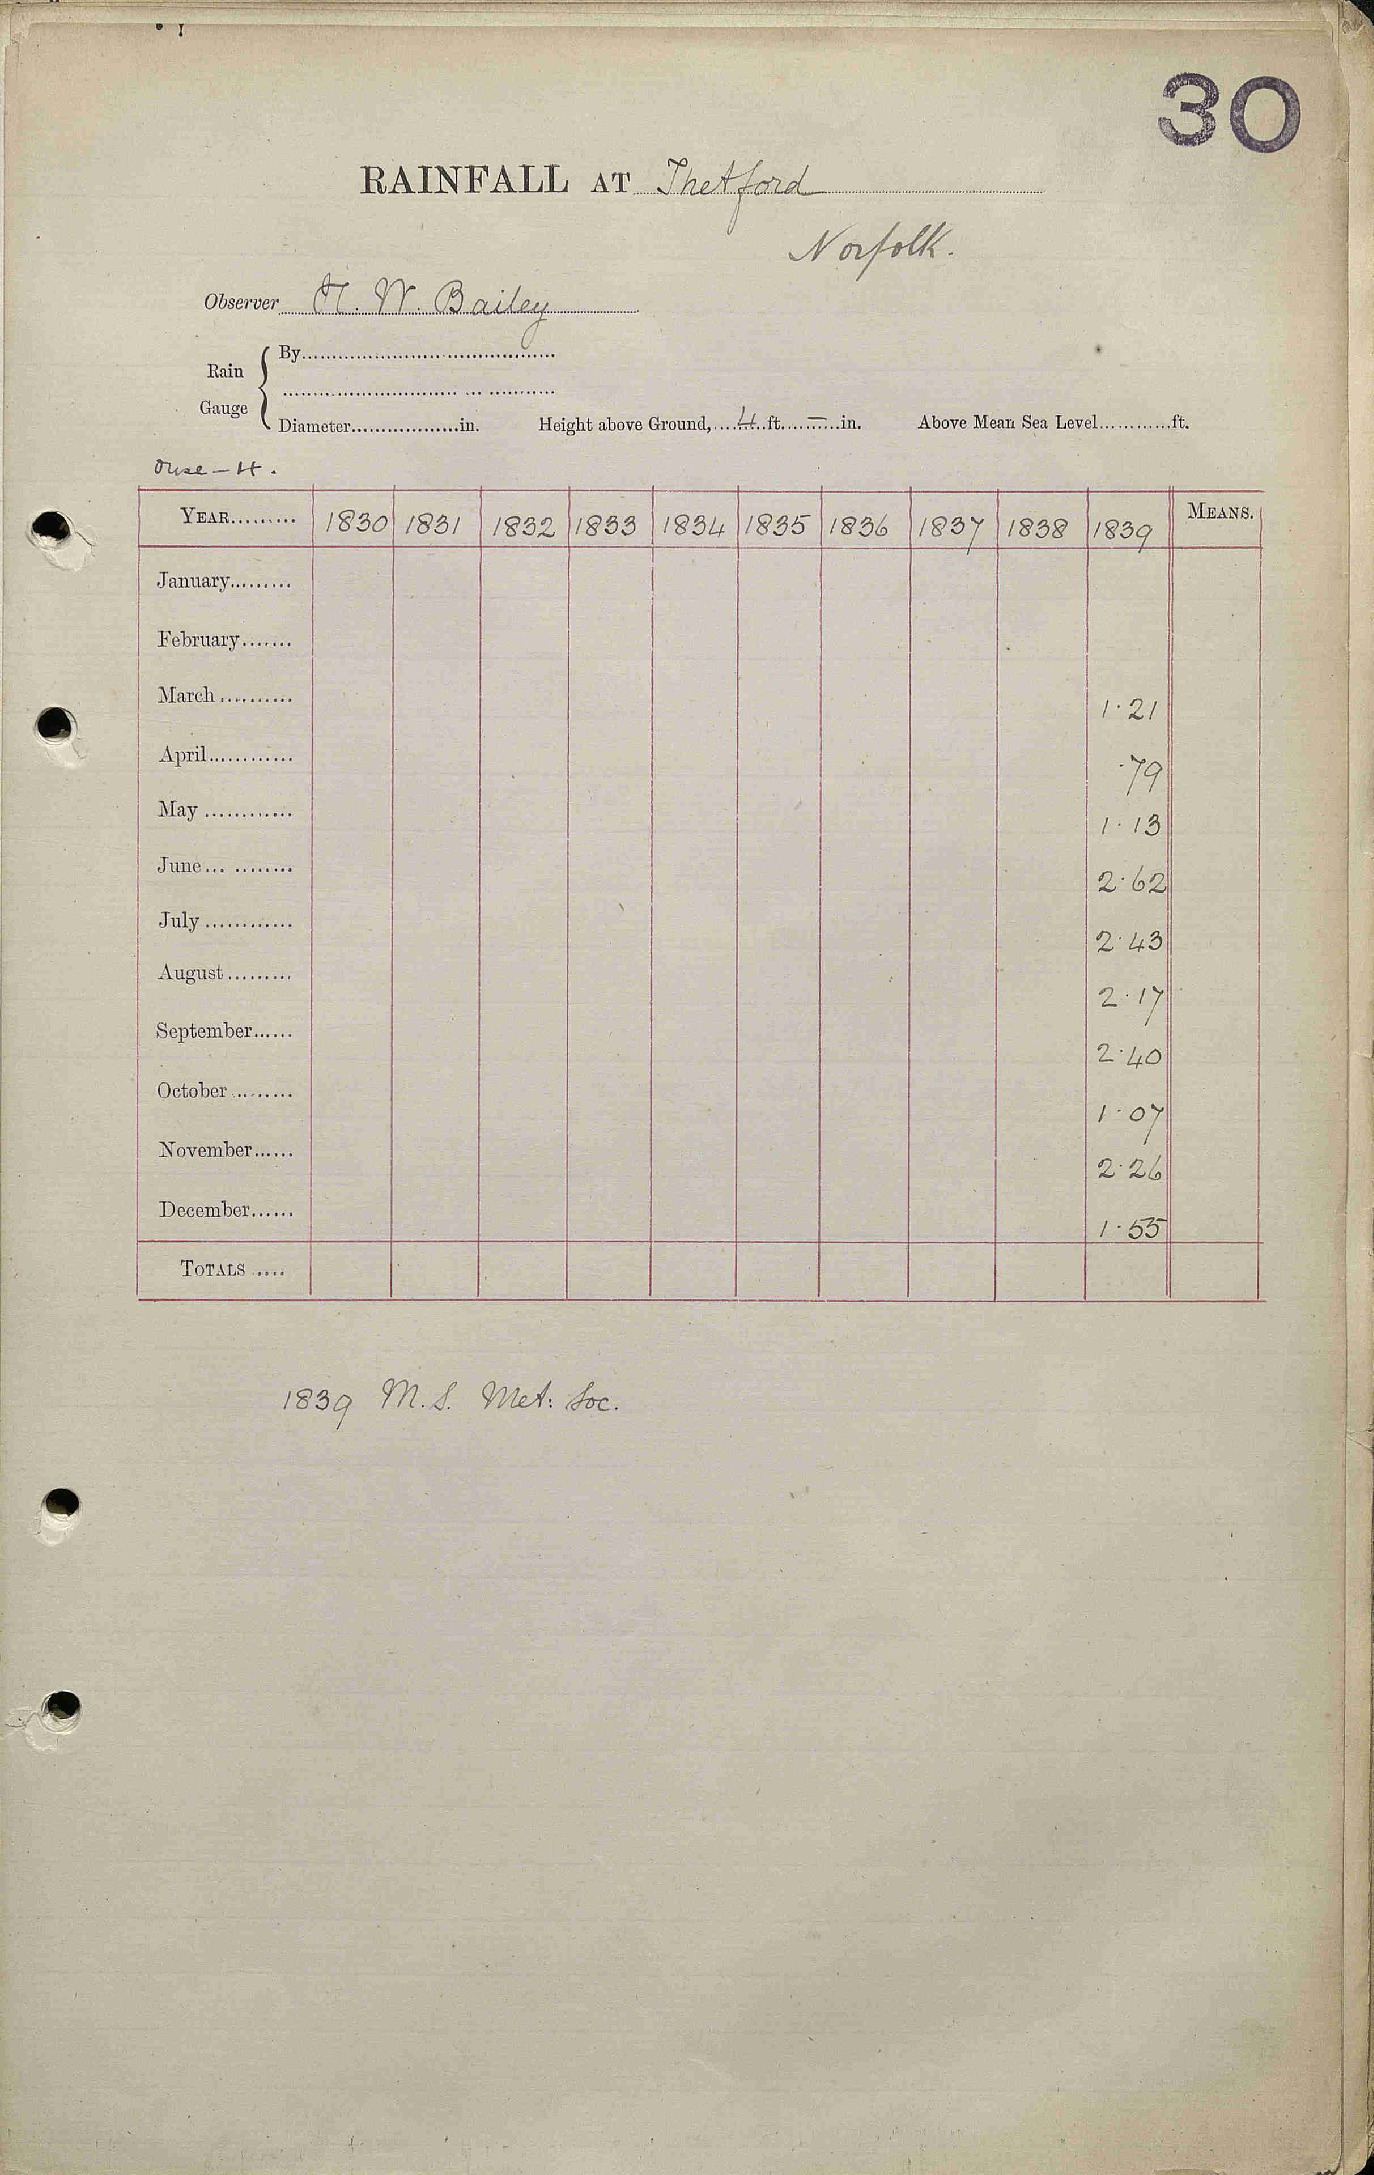 30
RAINFALL AT Thetford
Norfolk.
Observer H. W. Bailey
Rain Gauge { By
Diameter in. Height above Ground, 4 ft. — in. Above Mean Sea Level ft.
Ouse - H.
YEAR 1830 1831 1832 1833 1834 1835 1836 1837 1838 1839 MEANS.
January
February
March 1.21
April .79
May 1.13
June 2.62
July 2.43
August 2.17
September 2.40
October 1.07
November 2.26
December 1.55
TOTALS
1839 M.S. Met: Soc.